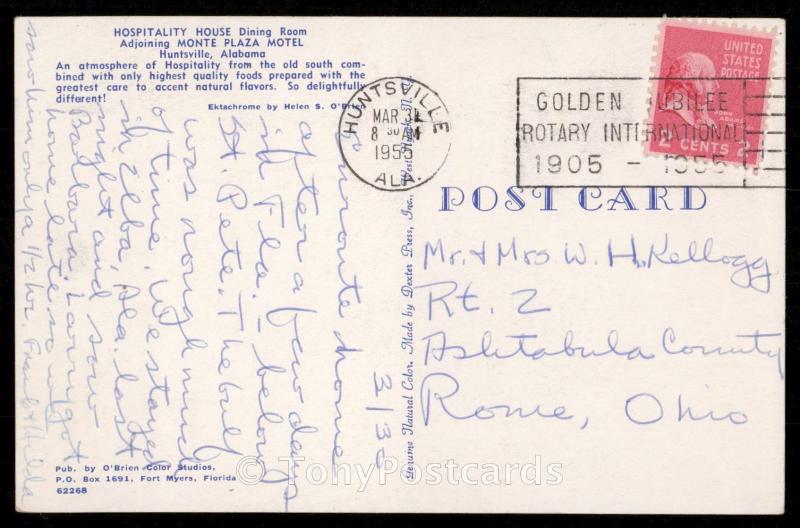 HOSPITALITY HOUSE Dining Room
Adjoining MONTE PLAZA MOTEL
Huntsville, Alabama
An atmosphere of Hospitality from the old south com-
bined with only highest quality foods prepared with the
greatest care to accent natural flavors. So delightfully
different!
Ektachrome by Helen S. O'Brien
HUNTSVILLE
MAR 31
8 30 AM
1955
ALA.
GOLDEN JUBILEE
ROTARY INTERNATIONAL
1905 - 1955
UNITED
STATES
POSTAGE
JOHN
ADAMS
2 CENTS 2
POST CARD
Mr. & Mrs W. H. Kellogg
Rt. 2
Ashtabula County
Rome, Ohio
Genuine Natural Color. Made by Dexter Press, Inc.,
3/30
Enroute home
after a few days
in Fla. - below
St. Pete. The bulf
was rough much
of time. We stayed
in Elba, Ala. last
night and saw
Barbara. Larry got
home late so we
saw him only a 1/2 hr. Frank & Hilda
Pub. by O'Brien Color Studios,
P.O. Box 1691, Fort Myers, Florida
62268
© TonyPostcards